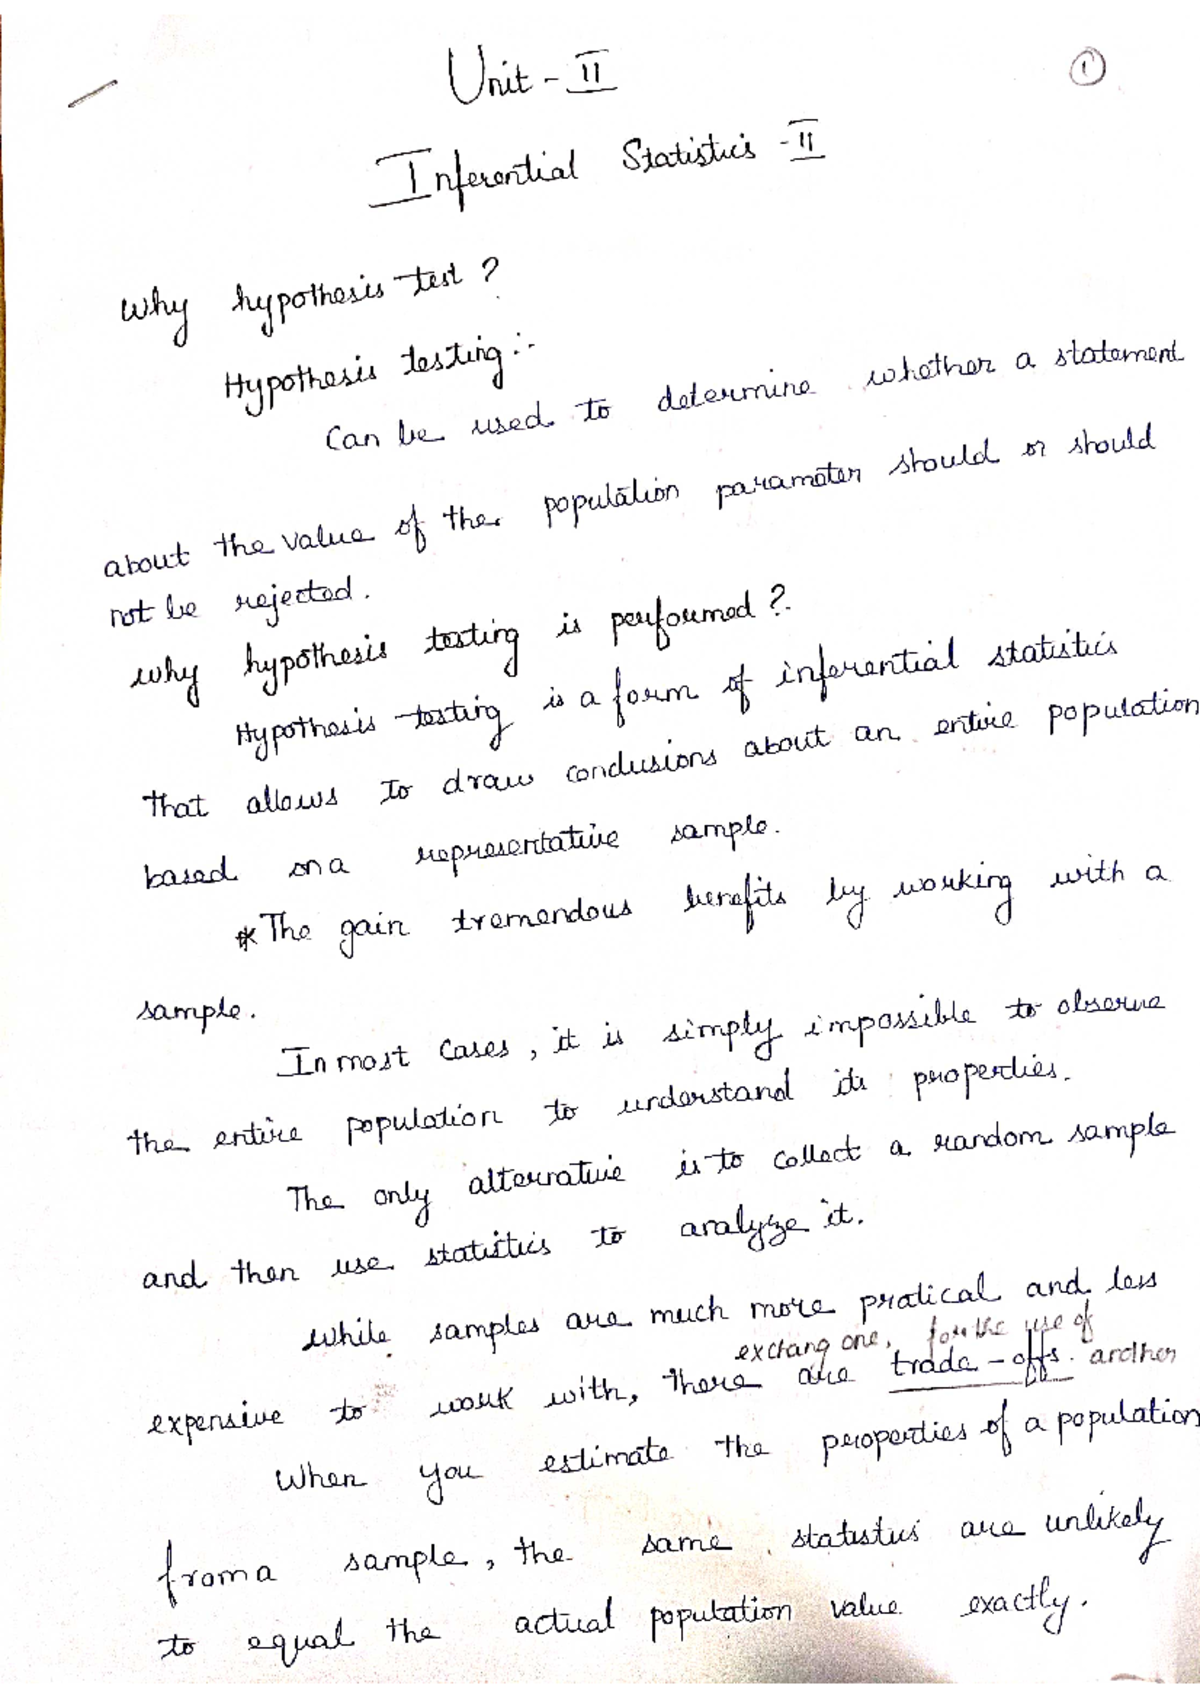 1
Unit - II
Inferential Statistics - II
Why hypothesis test ?
Hypothesis testing :-
Can be used to determine whether a statement
about the value of the population parameter should or should
not be rejected.
why hypothesis testing is performed ?
Hypothesis testing is a form of inferential statistics
that allows to draw conclusions about an entire population
based on a representative sample.
* The gain tremendous benefits by working with a
sample.
In most cases, it is simply impossible to observe
the entire population to understand its properties.
The only alternative is to collect a random sample
and then use statistics to analyze it.
while samples are much more pratical and less
exctang one, for the use of
expensive to work with, there are trade-offs. another
When you estimate the properties of a population
from a sample, the same statistics are unlikely
to equal the actual population value exactly.